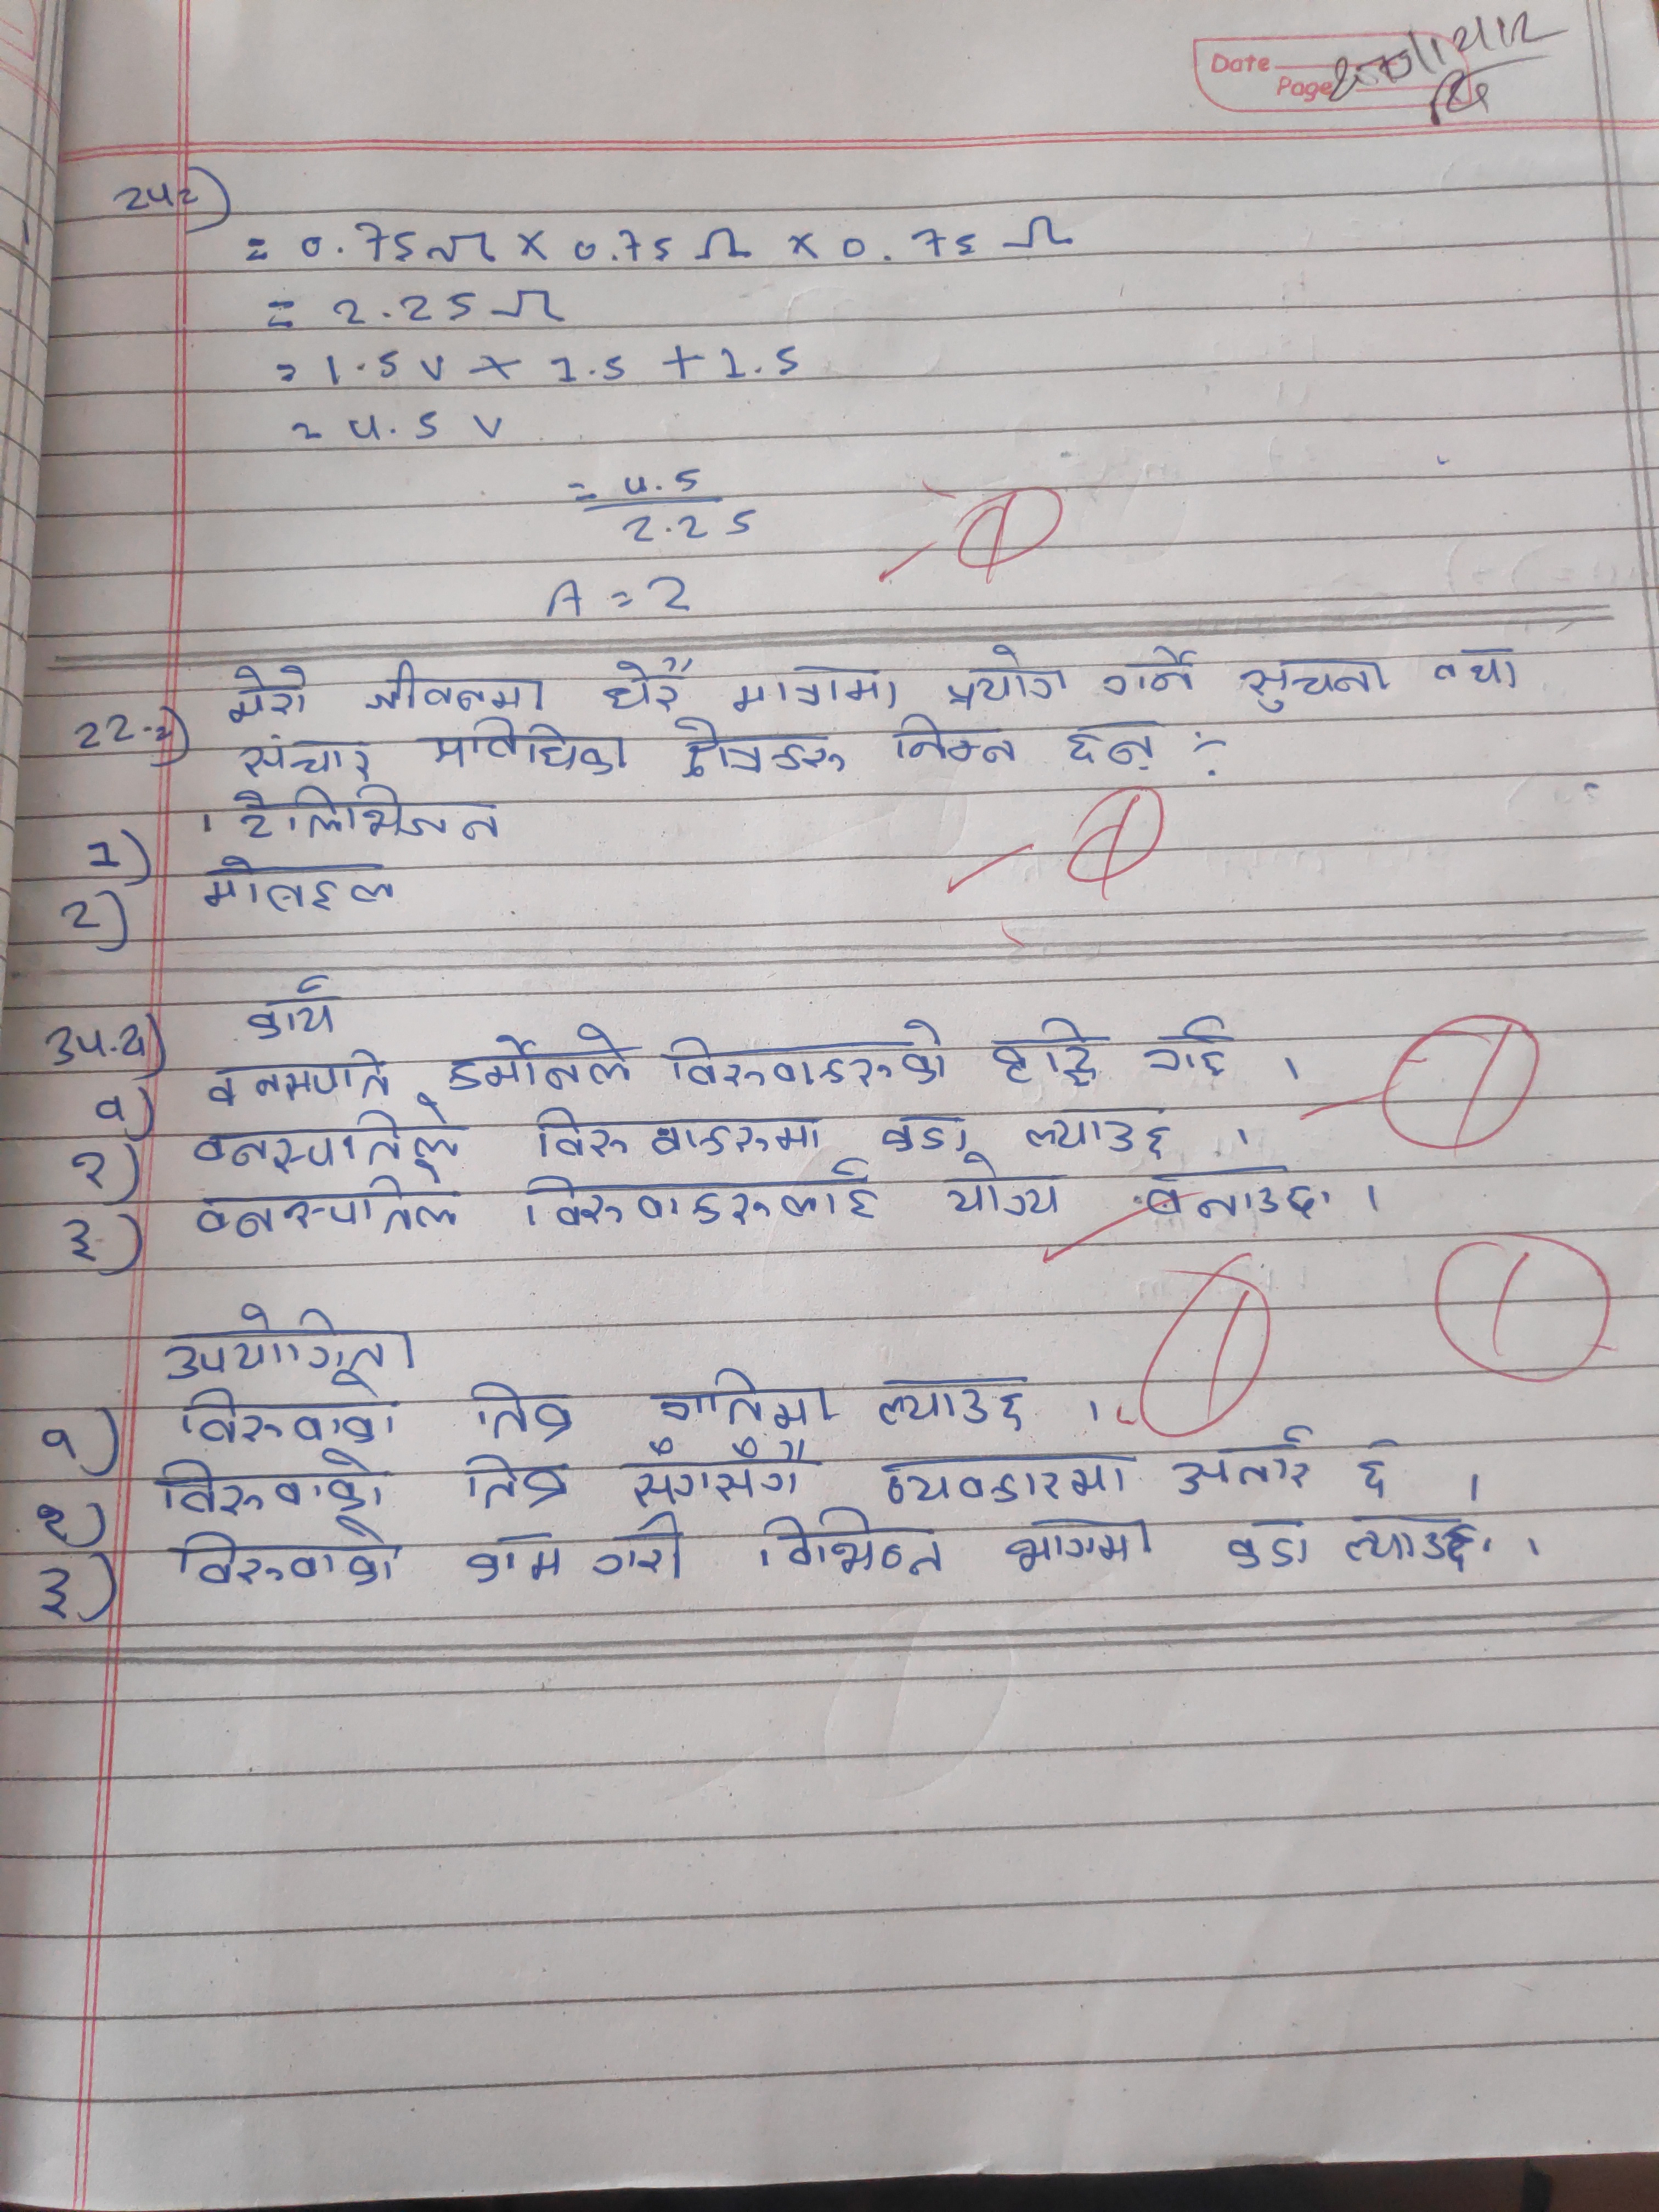 Date
Page
24२)
= 0.75Ω × 0.75 Ω × 0.75 Ω
= 2.25 Ω
= 1.5 V + 1.5 + 1.5
= 4.5 V
= 4.5
2.25
A = 2
22.२) मेरो जीवनमा धेरै मात्रामा प्रयोग गर्ने सुचना तथा
संचार प्रविधिका क्षेत्रहरू निम्न छन् :-
1) टेलिभिजन
2) मोबाइल
कार्य
१) वनस्पति हर्मोनले विरुवाहरुको वृद्धि गर्छ ।
२) वनस्पतिले विरुवाहरुमा कडा ल्याउछ ।
३) वनस्पतिले विरुवाहरुलाई योग्य बनाउछ ।
उपयोगिता
१) विरुवाको तिब्र गतिमा ल्याउछ ।
२) विरुवाको तिब्र सँगसँगै व्यवहारमा छ ।
३) विरुवाको काम गरी विभिन्न भागमा कडा ल्याउछ ।
1
1
1
1
1